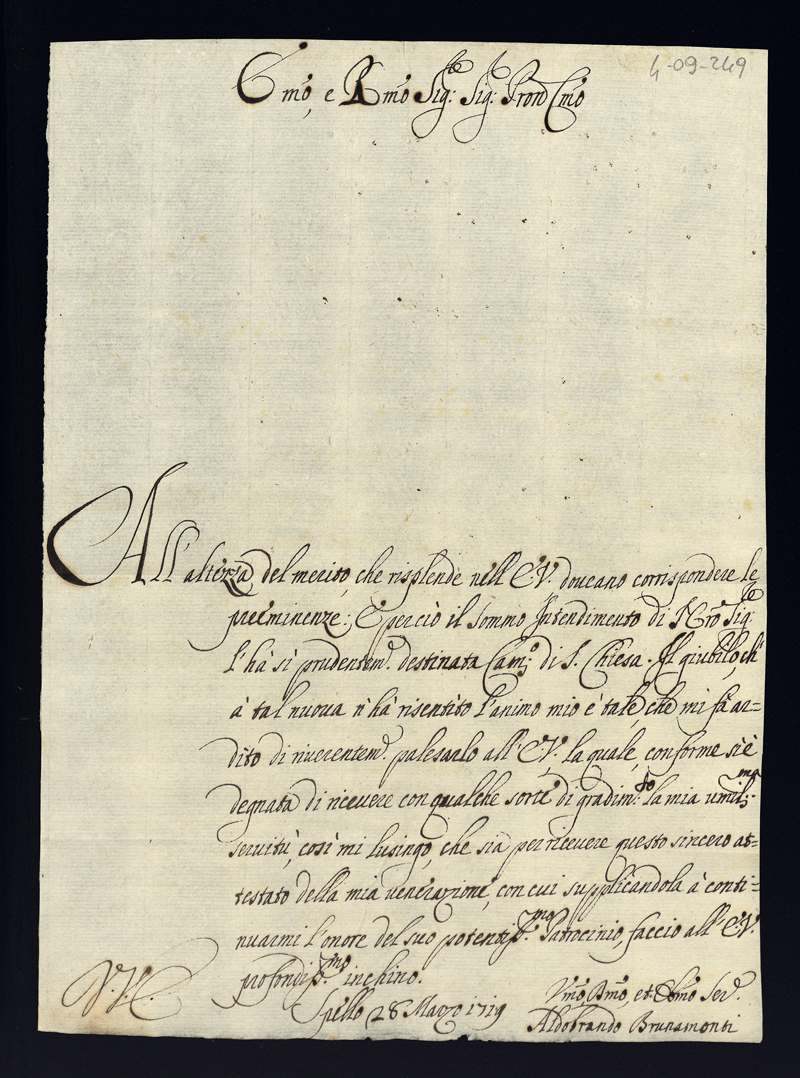 4-09-249
Emo, e Rmo Sig.re Sig. Pron Cmo
All'altezza del merito, che risplende nell'E.V. doueano corrispondere le
preeminenze: E perciò il sommo Intendimento di Nro Sig.re
l'hà sì prudentem.e destinata Cam.o di S. Chiesa. Il giubilo, ch'
à tal nuova n'hà risentito l'animo mio è tale, che mi fà ar=
dito di riuerentem.e palesarlo all'E.V., la quale, conforme s'è
degnata di riceuere con qualche sorte di gradim.to la mia umil.ma
seruitù, così mi lusingo, che sia per riceuere questo sincero at=
testato della mia venerazione, con cui supplicandola à conti=
nuarmi l'onore del suo potentiss.mo Patrocinio, faccio all'E.V.
profondiss.mo inchino.
Spello 28 Marzo 1719
Vmo, Dmo, et Obmo Ser.e
Aldobrando Brunamonti